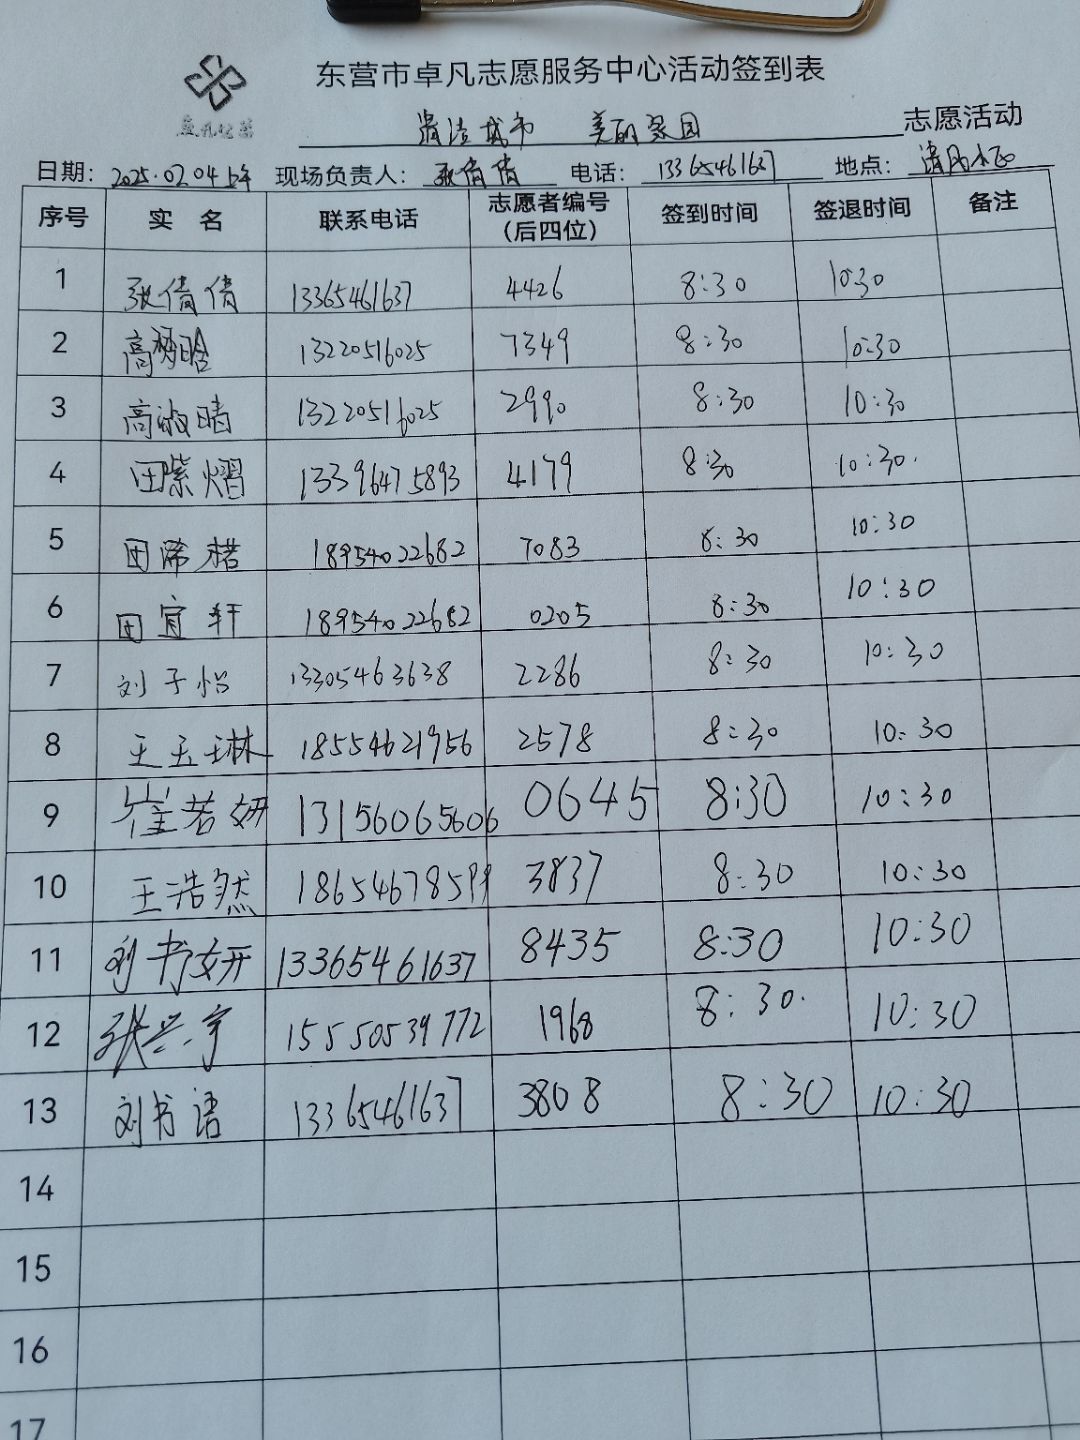 东营市卓凡志愿服务中心活动签到表
卓凡公益
清洁城市 美丽家园 志愿活动
日期: 2025.02.04上午 现场负责人: 张倩倩 电话: 13365461637 地点: 清风
序号 实名 联系电话 志愿者编号(后四位) 签到时间 签退时间 备注
1 张倩倩 13365461637 4426 8:30 10:30
2 高 晗 13220516025 7349 8:30 10:30
3 高淑晴 13220516025 2990 8:30 10:30
4 田紫熠 13396475893 4179 8:30 10:30.
5 田 18954022682 7083 8:30 10:30
6 田宜轩 18954022682 0205 8:30 10:30
7 刘子怡 13305463638 2286 8:30 10:30
8 王玉琳 18554621956 2578 8:30 10:30
9 崔若妍 13156065606 0645 8:30 10:30
10 王浩然 18654678599 3837 8:30 10:30
11 刘书妍 13365461637 8435 8:30 10:30
12 张兴宇 15550539772 1968 8:30. 10:30
13 刘书语 13365461637 3808 8:30 10:30
14
15
16
17